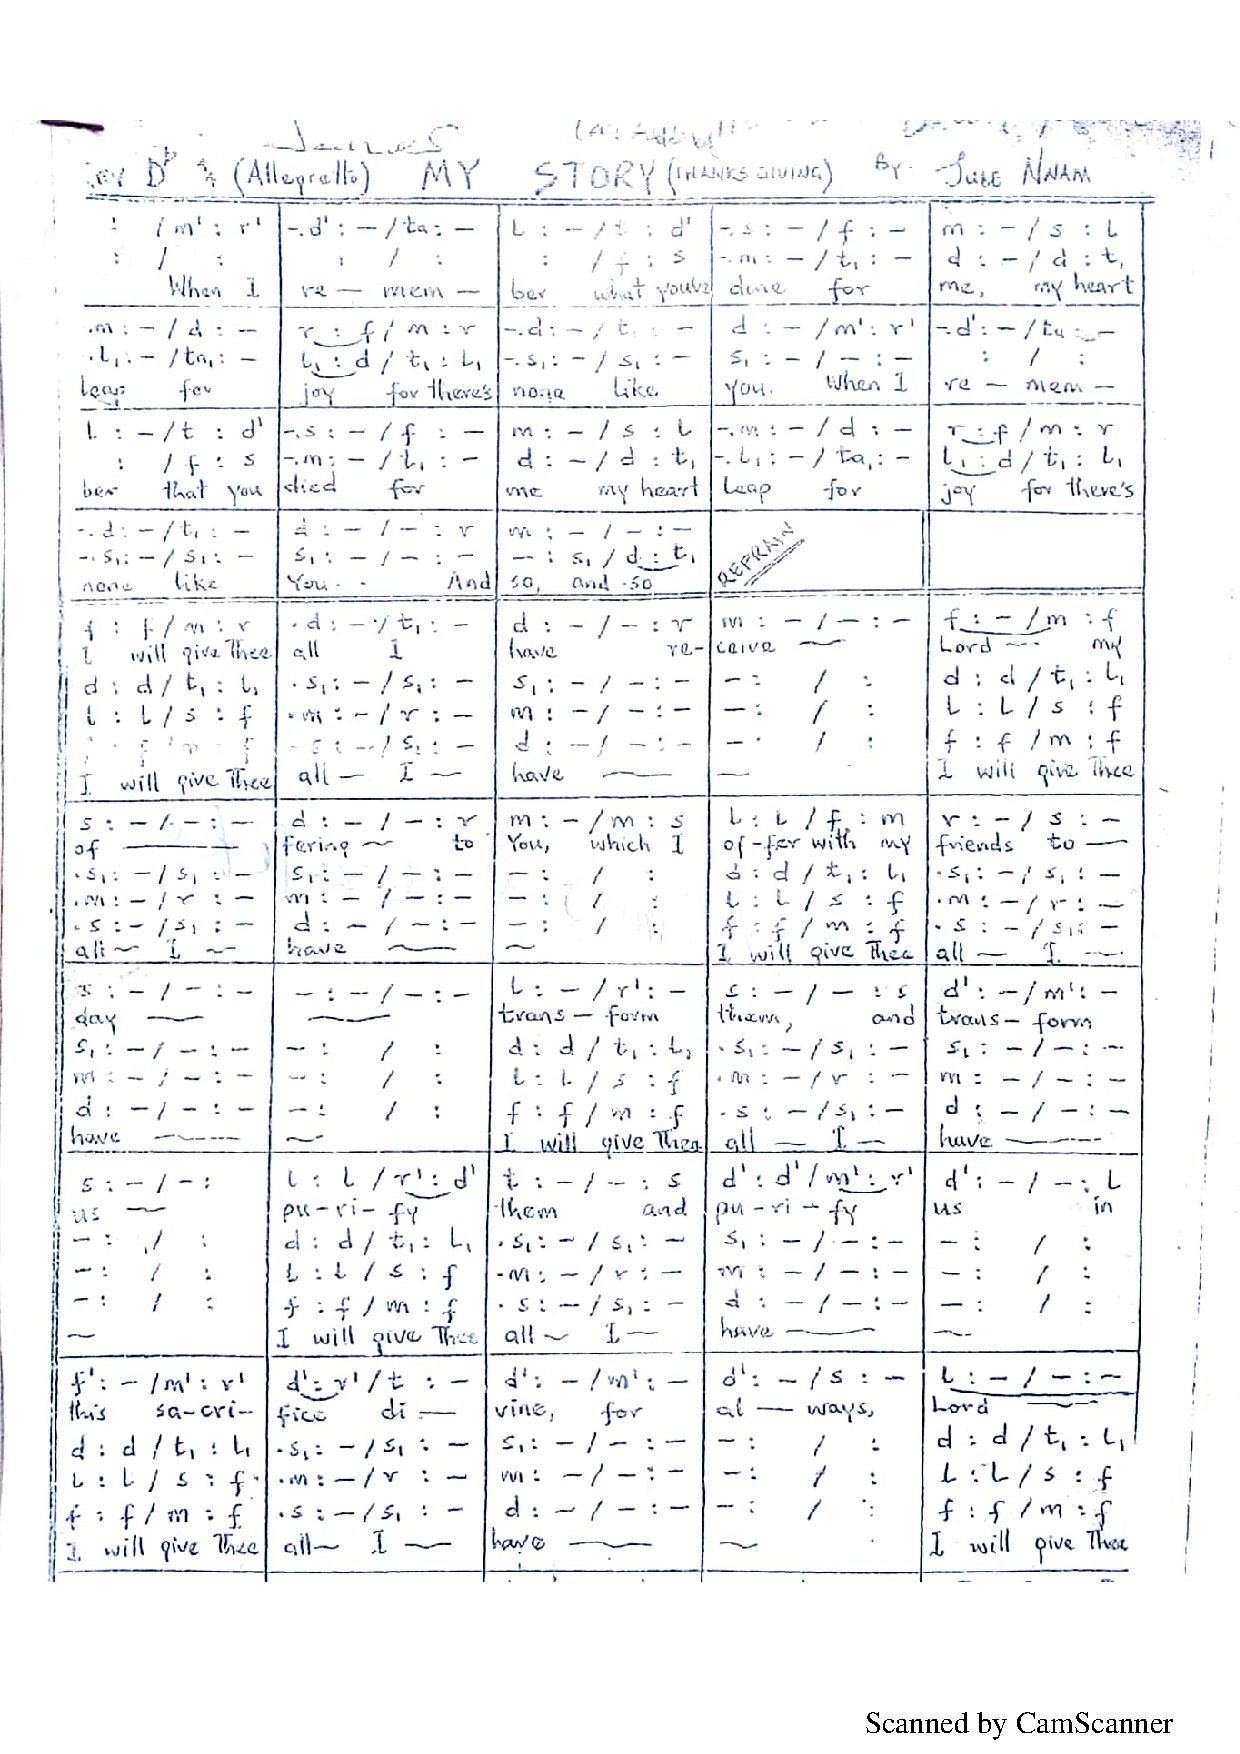 James
KEY Db 4/4 (Allegretto) MY STORY (THANKSGIVING) By- JUDE NNAM
: / m' : r' | -.d' : - / ta : - | l : - / t : d' | -.s : - / f : - | m : - / s : l
: / : | : / : | : / f : s | -.m : - / t₁ : - | d : - / d : t₁
When I | re — mem — | ber what you've | done for | me, my heart
.m : - / d : - | r : f / m : r | -.d : - / t₁ : - | d : - / m' : r' | -.d' : - / ta : -
.l₁ : - / ta₁ : - | l₁ : d / t₁ : l₁ | -.s₁ : - / s₁ : - | s₁ : - / - : - | : / :
leap for | joy for there's | none like | you. When I | re — mem —
l : - / t : d' | -.s : - / f : - | m : - / s : l | -.m : - / d : - | r : f / m : r
: / f : s | -.m : - / t₁ : - | d : - / d : t₁ | -.l₁ : - / ta₁ : - | l₁ : d / t₁ : l₁
ber that you | died for | me my heart | leap for | joy for there's
-.d : - / t₁ : - | d : - / - : r | m : - / - : - | REFRAIN
-.s₁ : - / s₁ : - | s₁ : - / - : - | - : s₁ / d : t₁
none like | You. . And | so, and so
f : f / m : r | .d : - / t₁ : - | d : - / - : r | m : - / - : - | f : - / m : f
I will give Thee | all I | have re- | ceive — | Lord — my
d : d / t₁ : l₁ | .s₁ : - / s₁ : - | s₁ : - / - : - | - : / : | d : d / t₁ : l₁
l : l / s : f | .m : - / r : - | m : - / - : - | - : / : | l : l / s : f
f : f / m : f | .s : - / s₁ : - | d : - / - : - | - : / : | f : f / m : f
I will give Thee | all — I — | have — | — | I will give Thee
s : - / - : - | d : - / - : r | m : - / m : s | l : l / f : m | r : - / s : -
of — | fering — to | You, which I | of-fer with my | friends to —
.s₁ : - / s₁ : - | s₁ : - / - : - | - : / : | d : d / t₁ : l₁ | .s₁ : - / s₁ : -
.m : - / r : - | m : - / - : - | - : / : | l : l / s : f | .m : - / r : -
.s : - / s₁ : - | d : - / - : - | - : / : | f : f / m : f | .s : - / s₁ : -
all — I — | have — | — | I will give Thee | all — I —
s : - / - : - | - : - / - : - | l : - / r' : - | s : - / - : s | d' : - / m' : -
day — | — | trans — form | them, and | trans — form
s₁ : - / - : - | - : / : | d : d / t₁ : l₁ | .s₁ : - / s₁ : - | s₁ : - / - : -
m : - / - : - | - : / : | l : l / s : f | .m : - / r : - | m : - / - : -
d : - / - : - | - : / : | f : f / m : f | .s : - / s₁ : - | d : - / - : -
have — | — | I will give Thee | all — I — | have —
s : - / - : | l : l / r' : d' | t : - / - : s | d' : d' / m' : r' | d' : - / - : l
us — | pu-ri-fy | them and | pu-ri-fy | us in
- : / : | d : d / t₁ : l₁ | .s₁ : - / s₁ : - | s₁ : - / - : - | - : / :
- : / : | l : l / s : f | .m : - / r : - | m : - / - : - | - : / :
- : / : | f : f / m : f | .s : - / s₁ : - | d : - / - : - | - : / :
— | I will give Thee | all — I — | have — | —
f' : - / m' : r' | d' : r' / t : - | d' : - / m' : - | d' : - / s : - | l : - / - : -
this sa-cri- | fice di — | vine, for | al — ways, | Lord —
d : d / t₁ : l₁ | .s₁ : - / s₁ : - | s₁ : - / - : - | - : / : | d : d / t₁ : l₁
l : l / s : f | .m : - / r : - | m : - / - : - | - : / : | l : l / s : f
f : f / m : f | .s : - / s₁ : - | d : - / - : - | - : / : | f : f / m : f
I will give Thee | all — I — | have — | — | I will give Thee
Scanned by CamScanner